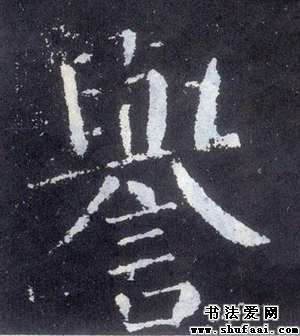 譽
书法爱网
www.shufaai.com